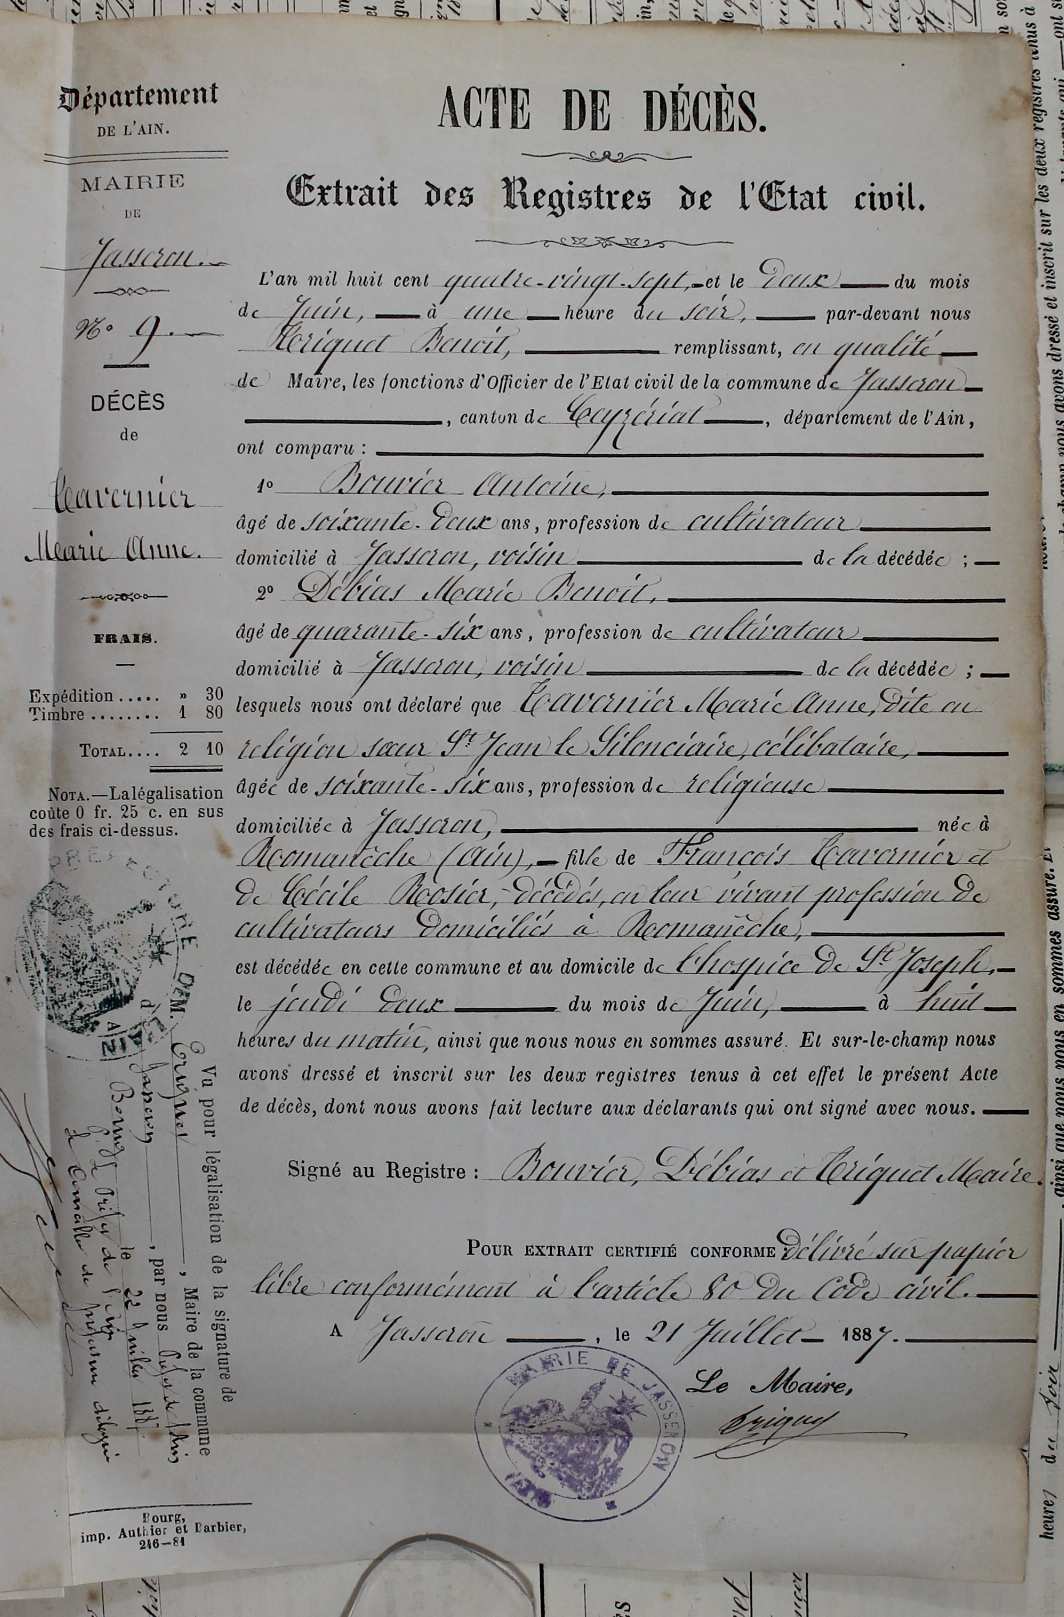 Département
DE L'AIN.
MAIRIE
DE
Jasseron.
No 9.
DÉCÈS
de
Tavernier
Marie Anne.
FRAIS.
Expédition ..... » 30
Timbre ........ 1 80
TOTAL.... 2 10
NOTA.—La légalisation
coûte 0 fr. 25 c. en sus
des frais ci-dessus.
ACTE DE DÉCÈS.
Extrait des Registres de l'Etat civil.
L'an mil huit cent quatre-vingt-sept, et le deux du mois
de Juin, à une heure du soir, par-devant nous
Triquet Benoit, remplissant, en qualité
de Maire, les fonctions d'Officier de l'Etat civil de la commune de Jasseron
, canton de Ceyzériat, département de l'Ain,
ont comparu :
1o Bouvier Antoine,
âgé de soixante-deux ans, profession de cultivateur
domicilié à Jasseron, voisin de la décédée ;
2o Débias Marie Benoit,
âgé de quarante-six ans, profession de cultivateur
domicilié à Jasseron, voisin de la décédée ;
lesquels nous ont déclaré que Tavernier Marie Anne, dite en
religion sœur St Jean le Silenciaire, célibataire,
âgée de soixante-six ans, profession de religieuse
domiciliée à Jasseron, née à
Romanèche (Ain), fille de François Tavernier et
de Cécile Rosier, décédés, en leur vivant profession de
cultivateurs domiciliés à Romanèche,
est décédée en cette commune et au domicile de l'hospice de St Joseph,
le jeudi deux du mois de Juin, à huit
heures du matin, ainsi que nous nous en sommes assuré. Et sur-le-champ nous
avons dressé et inscrit sur les deux registres tenus à cet effet le présent Acte
de décès, dont nous avons fait lecture aux déclarants qui ont signé avec nous.
Signé au Registre : Bouvier, Débias et Triquet Maire.
POUR EXTRAIT CERTIFIÉ CONFORME délivré sur papier
libre conformément à l'article 80 du Code civil.
A Jasseron, le 21 Juillet 1887.
Le Maire,
Triquet
MAIRIE DE JASSERON
(AIN)
PRÉFECTURE DE
L'AIN
Vu pour légalisation de la signature de
M. Triquet, Maire de la commune
de Jasseron, par nous Préfet de l'Ain
Bourg le 22 Juillet 1887
P. le Préfet de l'Ain
le Conseiller de préfecture délégué
Bourg,
imp. Authier et Barbier,
246—81